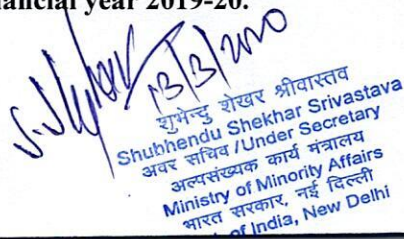 financial year 2019-20.
13/3/2020
शुभेन्दु शेखर श्रीवास्तव
Shubhendu Shekhar Srivastava
अवर सचिव /Under Secretary
अल्पसंख्यक कार्य मंत्रालय
Ministry of Minority Affairs
भारत सरकार, नई दिल्ली
of India, New Delhi